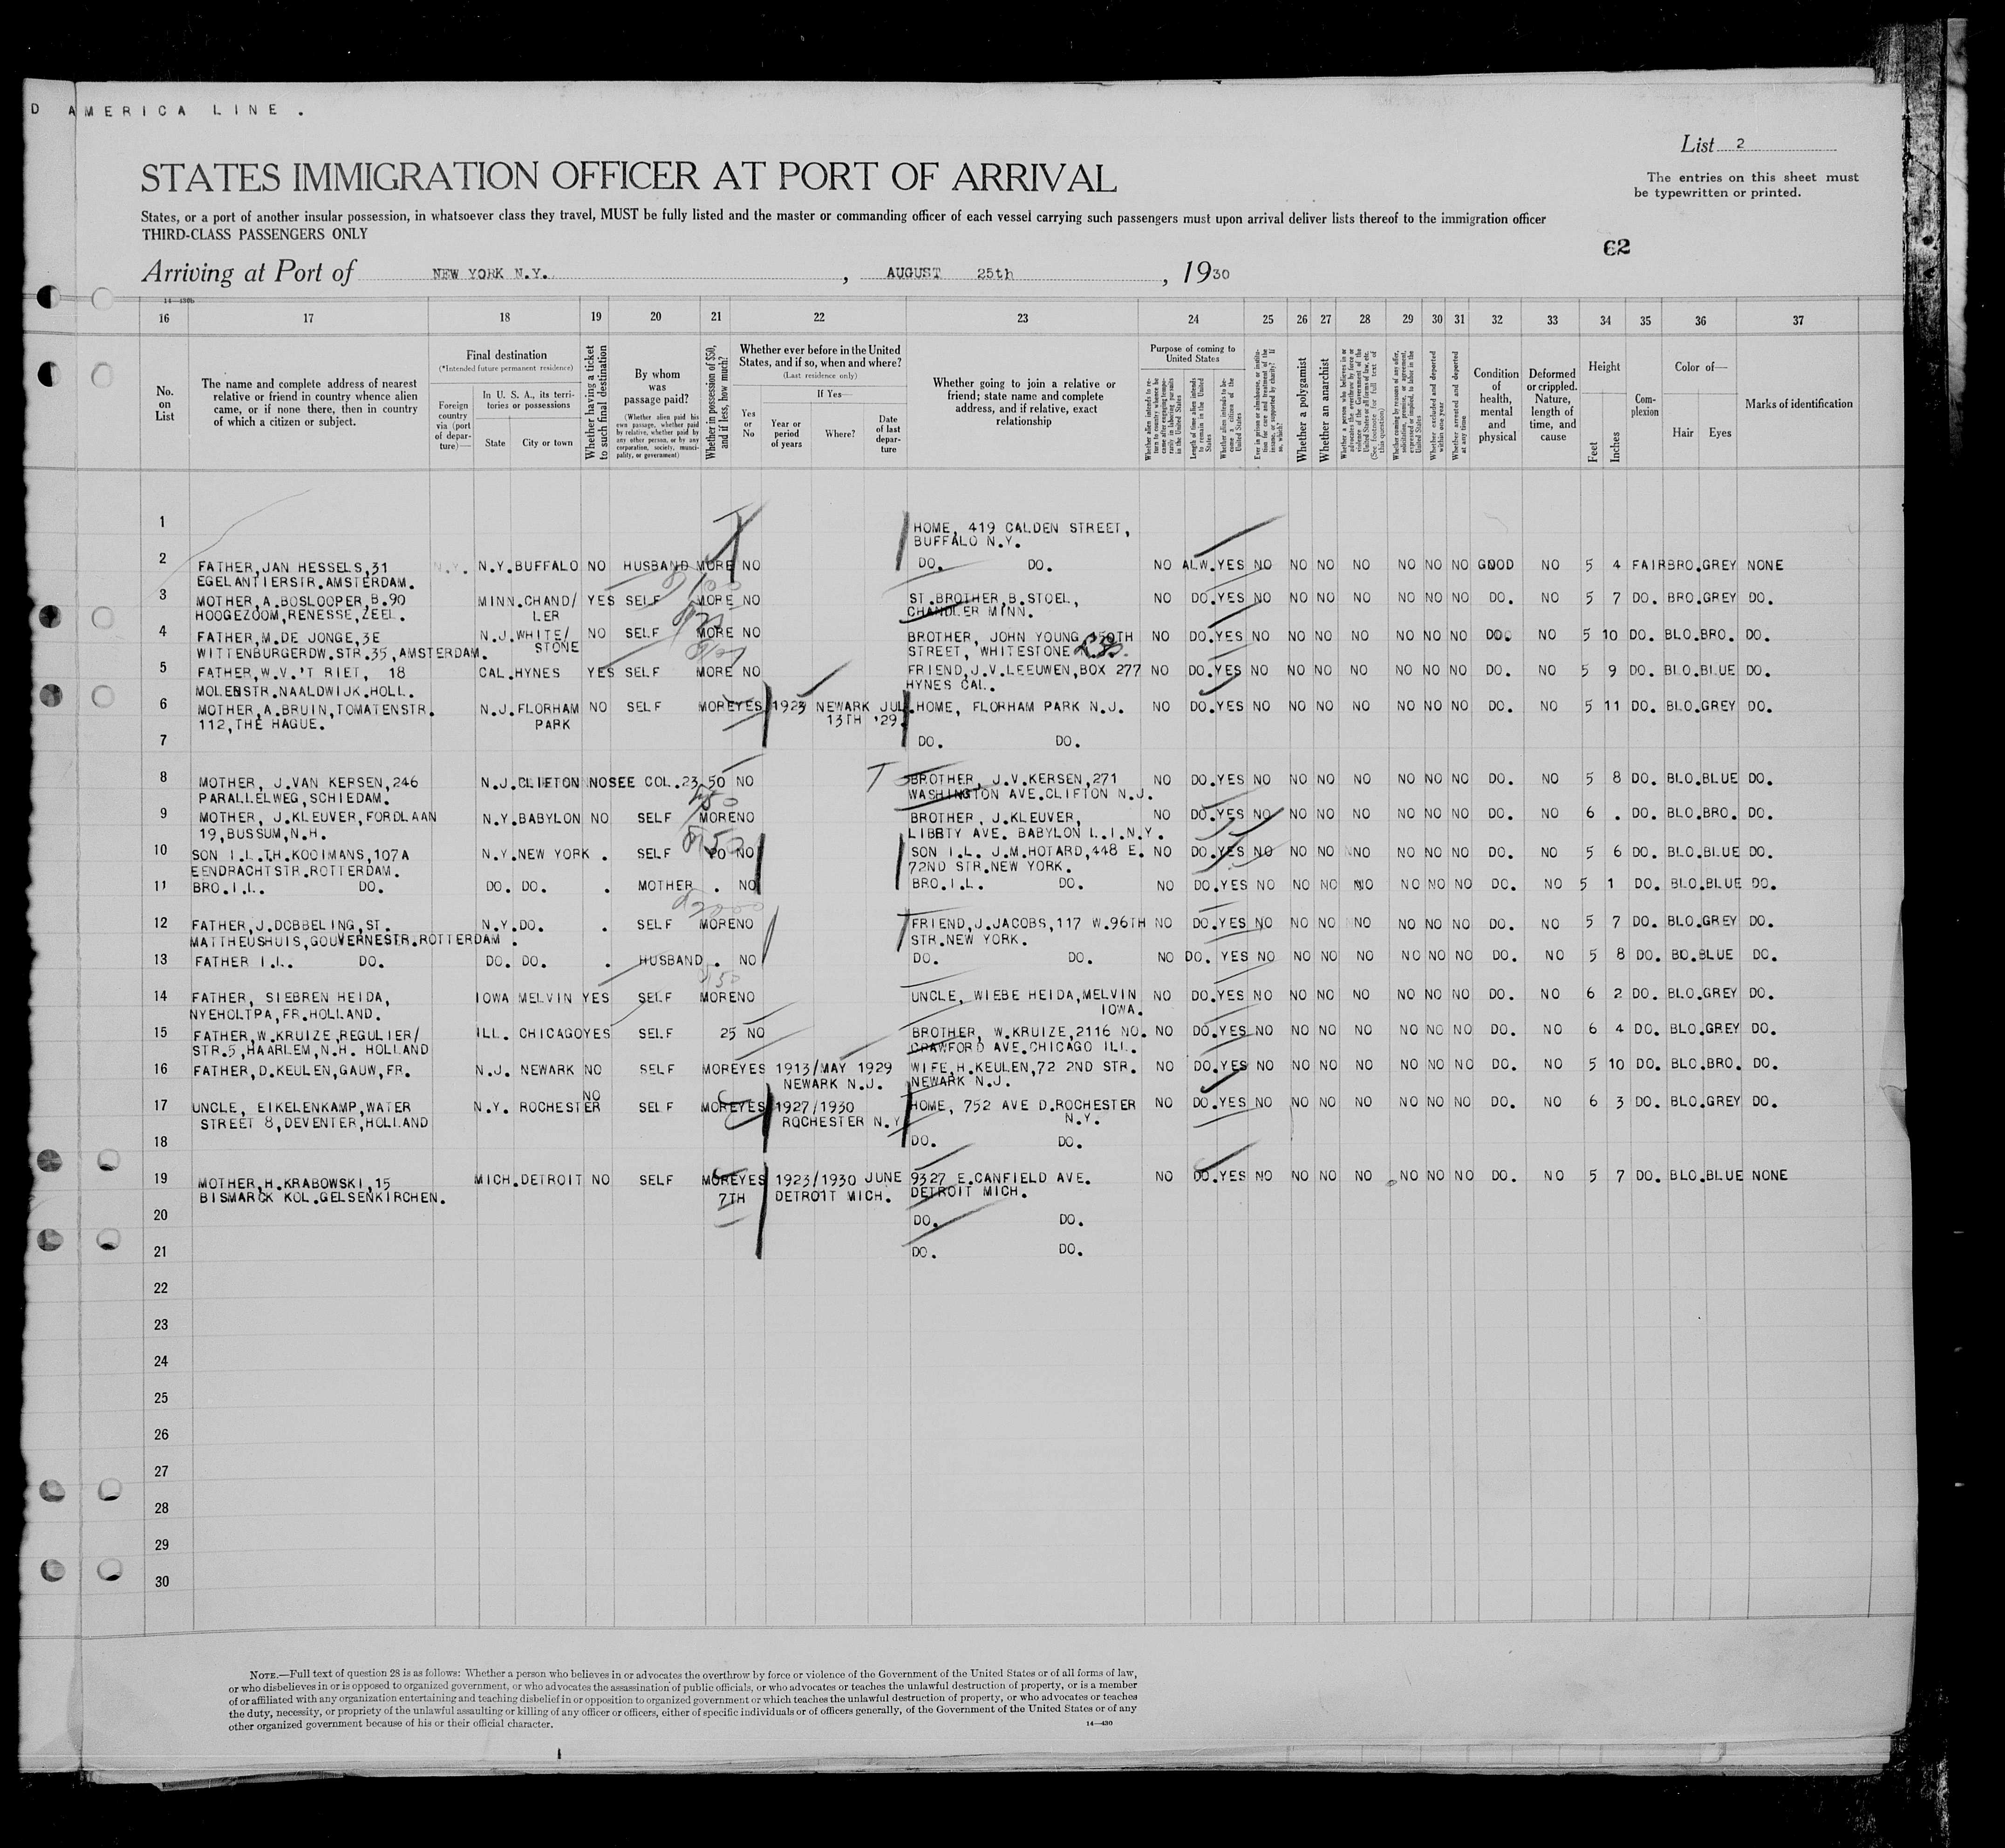 D AMERICA LINE .
List 2
STATES IMMIGRATION OFFICER AT PORT OF ARRIVAL
The entries on this sheet must
be typewritten or printed.
States, or a port of another insular possession, in whatsoever class they travel, MUST be fully listed and the master or commanding officer of each vessel carrying such passengers must upon arrival deliver lists thereof to the immigration officer
THIRD-CLASS PASSENGERS ONLY
62
Arriving at Port of NEW YORK N.Y. , AUGUST 25th , 1930
16 17 18 19 20 21 22 23 24 25 26 27 28 29 30 31 32 33 34 35 36 37
No. on List
The name and complete address of nearest
relative or friend in country whence alien
came, or if none there, then in country
of which a citizen or subject.
Final destination
(*Intended future permanent residence)
Foreign country via (port of departure)—
In U. S. A., its territories or possessions
State City or town
Whether having a ticket to such final destination
By whom was passage paid?
(Whether alien paid his own passage, whether paid by relative, whether paid by any other person, or by any corporation, society, municipality, or government)
Whether in possession of $50, and if less, how much?
Whether ever before in the United
States, and if so, when and where?
(Last residence only)
Yes or No
If Yes—
Year or period of years
Where?
Date of last departure
Whether going to join a relative or
friend; state name and complete
address, and if relative, exact
relationship
Purpose of coming to United States
Whether a polygamist
Whether an anarchist
Whether excluded and deported within one year
Whether arrested and deported at any time
Condition of health, mental and physical
Deformed or crippled. Nature, length of time, and cause
Height
Feet Inches
Complexion
Color of—
Hair Eyes
Marks of identification
1 HOME, 419 CALDEN STREET,
BUFFALO N.Y.
2 FATHER,JAN HESSELS,31 N.Y.BUFFALO NO HUSBAND MORE NO DO. DO. NO ALW.YES NO NO NO NO NO NO NO GOOD NO 5 4 FAIR BRO.GREY NONE
EGELANTIERSTR.AMSTERDAM.
3 MOTHER,A.BOSLOOPER,B.90 MINN.CHAND/ YES SELF MORE NO ST.BROTHER,B.STOEL, NO DO.YES NO NO NO NO NO NO NO DO. NO 5 7 DO. BRO.GREY DO.
HOOGEZOOM,RENESSE,ZEEL. LER CHANDLER MINN.
4 FATHER,M.DE JONGE,3E N.J.WHITE/ NO SELF MORE NO BROTHER, JOHN YOUNG 150TH NO DO.YES NO NO NO NO NO NO NO DO. NO 5 10 DO. BLO.BRO. DO.
WITTENBURGERDW.STR.35,AMSTERDAM. STONE STREET, WHITESTONE
5 FATHER,W.V.'T RIET, 18 CAL.HYNES YES SELF MORE NO FRIEND,J.V.LEEUWEN,BOX 277 NO DO.YES NO NO NO NO NO NO NO DO. NO 5 9 DO. BLO.BLUE DO.
MOLENSTR.NAALDWIJK.HOLL. HYNES CAL.
6 MOTHER,A.BRUIN,TOMATENSTR. N.J.FLORHAM NO SELF MORE YES 1923 NEWARK JUL. HOME, FLORHAM PARK N.J. NO DO.YES NO NO NO NO NO NO NO DO. NO 5 11 DO. BLO.GREY DO.
112,THE HAGUE. PARK 13TH '29
7 DO. DO.
8 MOTHER, J.VAN KERSEN,246 N.J.CLIFTON NO SEE COL.23 50 NO BROTHER, J.V.KERSEN,271 NO DO.YES NO NO NO NO NO NO NO DO. NO 5 8 DO. BLO.BLUE DO.
PARALLELWEG,SCHIEDAM. WASHINGTON AVE.CLIFTON N.J.
9 MOTHER, J.KLEUVER,FORDLAAN N.Y.BABYLON NO SELF MORE NO BROTHER, J.KLEUVER, NO DO.YES NO NO NO NO NO NO NO DO. NO 6 . DO. BLO.BRO. DO.
19,BUSSUM,N.H. LIBBTY AVE. BABYLON L.I.N.Y.
10 SON I.L.TH.KOOIMANS,107A N.Y.NEW YORK . SELF 20 NO SON I.L. J.M.HOTARD,448 E. NO DO.YES NO NO NO NO NO NO NO DO. NO 5 6 DO. BLO.BLUE DO.
EENDRACHTSTR.ROTTERDAM. 72ND STR.NEW YORK.
11 BRO.I.L. DO. DO. DO. . MOTHER . NO BRO.I.L. DO. NO DO.YES NO NO NO NO NO NO NO DO. NO 5 1 DO. BLO.BLUE DO.
12 FATHER,J.DOBBELING,ST. N.Y.DO. . SELF MORE NO FRIEND,J.JACOBS,117 W.96TH NO DO.YES NO NO NO NO NO NO NO DO. NO 5 7 DO. BLO.GREY DO.
MATTHEUSHUIS,GOUVERNESTR.ROTTERDAM . STR.NEW YORK.
13 FATHER I.L. DO. DO. DO. . HUSBAND . NO DO. DO. NO DO. YES NO NO NO NO NO NO NO DO. NO 5 8 DO. BD.BLUE DO.
14 FATHER, SIEBREN HEIDA, IOWA MELVIN YES SELF MORE NO UNCLE, WIEBE HEIDA,MELVIN NO DO.YES NO NO NO NO NO NO NO DO. NO 6 2 DO. BLO.GREY DO.
NYEHOLTPA,FR.HOLLAND. IOWA.
15 FATHER,W.KRUIZE,REGULIER/ ILL. CHICAGO YES SELF 25 NO BROTHER, W.KRUIZE,2116 NO. NO DO.YES NO NO NO NO NO NO NO DO. NO 6 4 DO. BLO.GREY DO.
STR.5,HAARLEM,N.H. HOLLAND CRAWFORD AVE.CHICAGO ILL.
16 FATHER,D.KEULEN,GAUW,FR. N.J. NEWARK NO SELF MORE YES 1913/MAY 1929 WIFE,H.KEULEN,72 2ND STR. NO DO.YES NO NO NO NO NO NO NO DO. NO 5 10 DO. BLO.BRO. DO.
NEWARK N.J. NEWARK N.J.
17 UNCLE, EIKELENKAMP,WATER N.Y. ROCHESTER NO SELF MORE YES 1927/1930 HOME, 752 AVE D.ROCHESTER NO DO.YES NO NO NO NO NO NO NO DO. NO 6 3 DO. BLO.GREY DO.
STREET 8,DEVENTER,HOLLAND ROCHESTER N.Y N.Y.
18 DO. DO.
19 MOTHER,H.KRABOWSKI,15 MICH.DETROIT NO SELF MORE YES 1923/1930 JUNE 9327 E.CANFIELD AVE. NO DO.YES NO NO NO NO NO NO NO DO. NO 5 7 DO. BLO.BLUE NONE
BISMARCK KOL.GELSENKIRCHEN. 7TH DETROIT MICH. DETROIT MICH.
20 DO. DO.
21 DO. DO.
22
23
24
25
26
27
28
29
30
NOTE.—Full text of question 28 is as follows: Whether a person who believes in or advocates the overthrow by force or violence of the Government of the United States or of all forms of law,
or who disbelieves in or is opposed to organized government, or who advocates the assassination of public officials, or who advocates or teaches the unlawful destruction of property, or is a member
of or affiliated with any organization entertaining and teaching disbelief in or opposition to organized government or which teaches the unlawful destruction of property, or who advocates or teaches
the duty, necessity, or propriety of the unlawful assaulting or killing of any officer or officers, either of specific individuals or of officers generally, of the Government of the United States or of any
other organized government because of his or their official character.
14—430